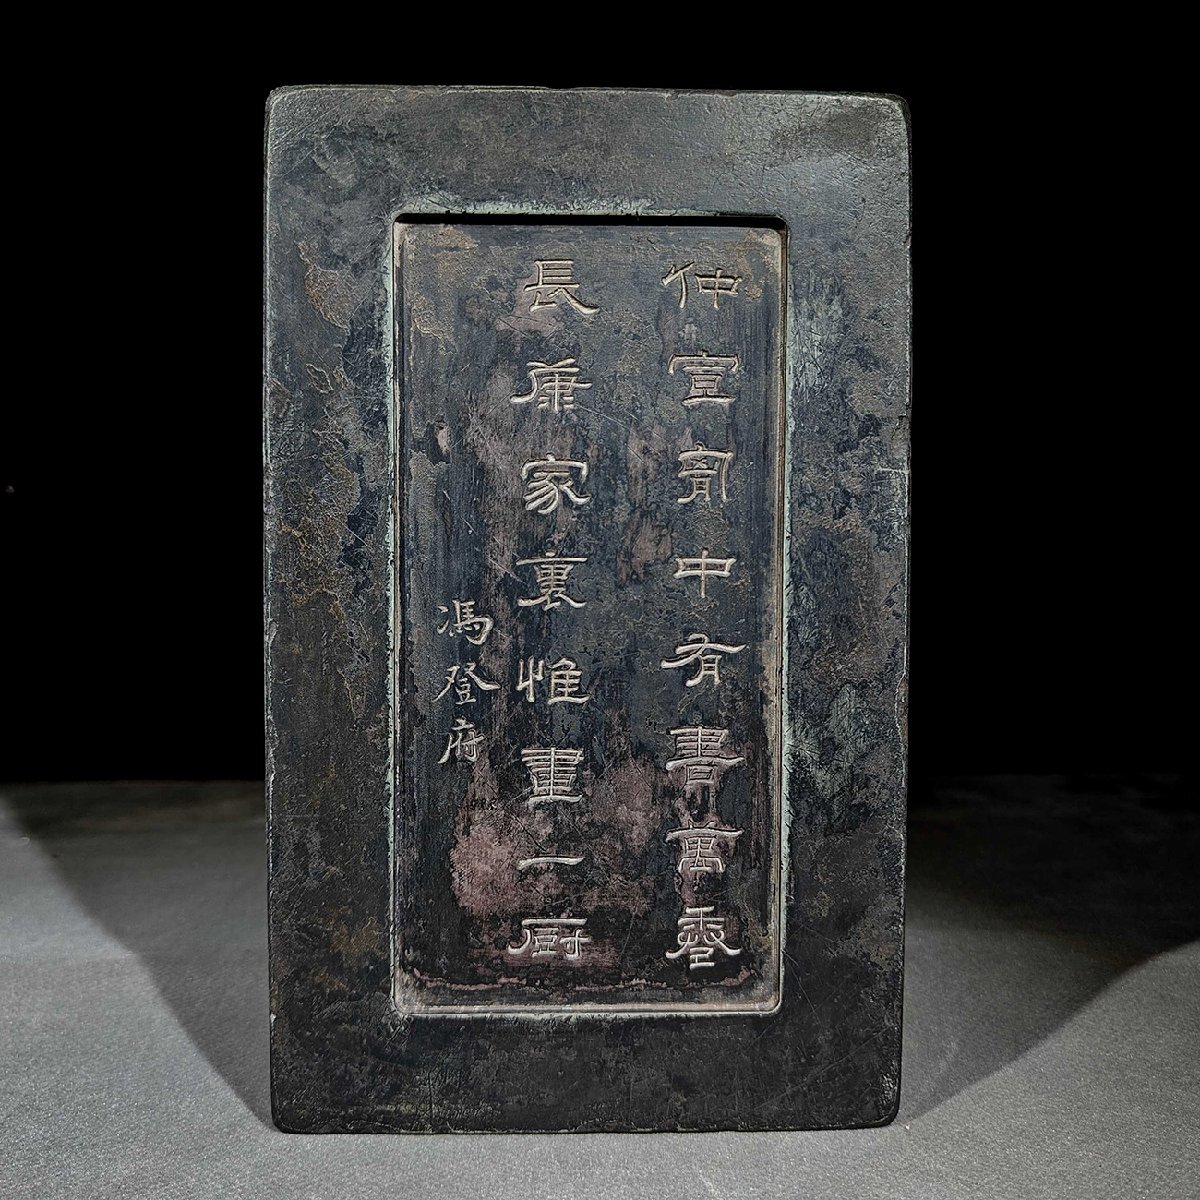 仲宣胷中有書萬卷
長康家裏惟畫一厨
馮登府